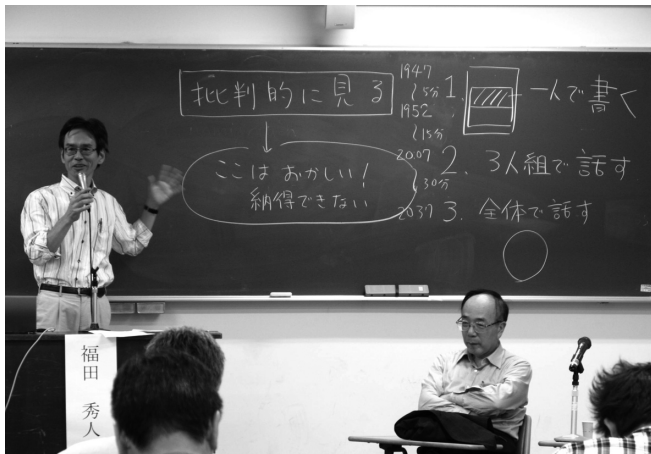 批判的に見る
ここはおかしい!
納得できない
1947
〜5分
1952
〜15分
2007
〜30分
2037
1. 一人で書く
2. 3人組で話す
3. 全体で話す
福田 秀人